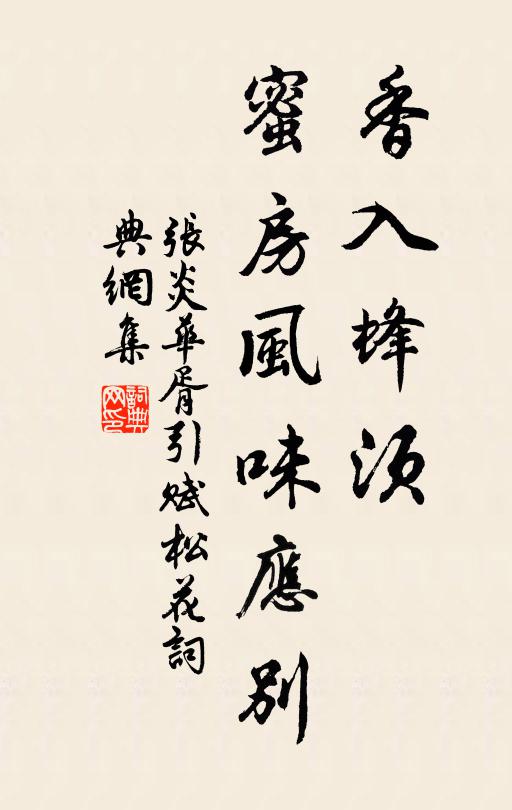 香入蜂须
蜜房風味應别
張炎華胥引賦松花詞
典網集
詞典网印